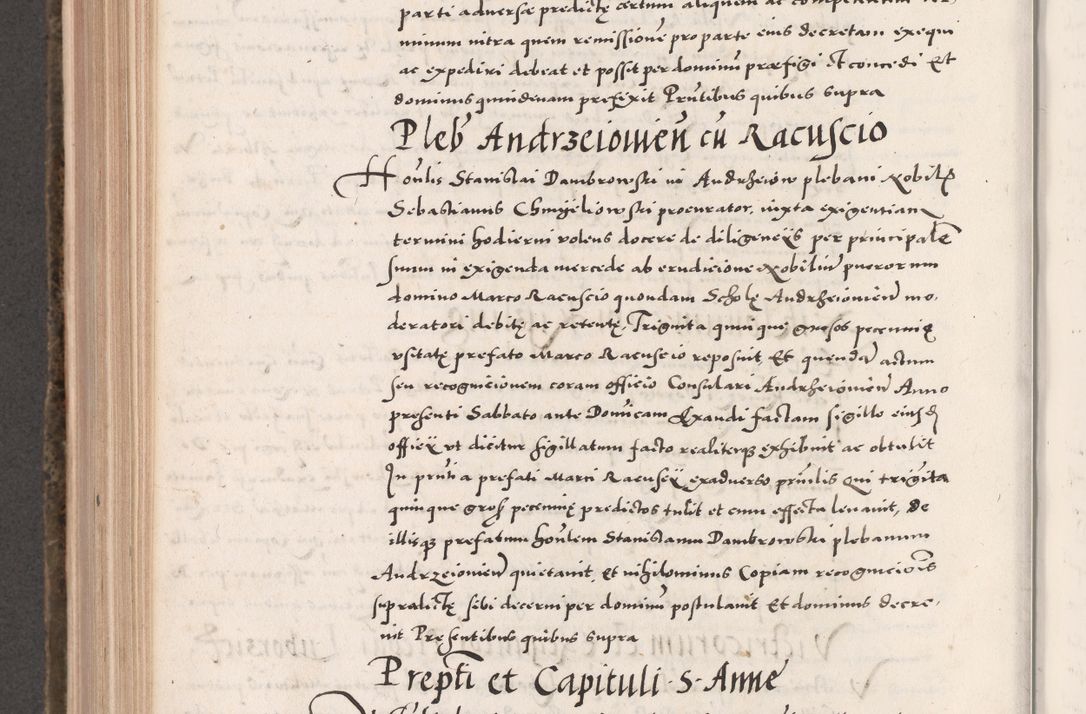 parti adverse predictę certum aliquem ac competentem ter-
minum intra quem remissionē pro parte eius decretam exequi
ac expediri debeat et possit per dominū præfigi et concedi Et
dominus quindenam prefixit Prntibus quibus supra
Pleb Andrzeiowień cū Racuscio
Honlis Stanislai Dambrowski in Andrzeiow plebani Nobilis
Sebastianus Chmyeliowski procurator, iuxta exigentiam
termini hodierni volens docere de diligencijs per principalē
suum in exigenda mercede ab erudicione Nobiliū puerorum
domino Marco Racuscio quondam Scholę Andrzeiowień mo-
deratori debitę ac retentę, Triginta quinque grosos pecunię
usitatę prefato Marco Racuscio reposuit, Et quendā actum
seu recognicionem coram officio Consulari Andrzeiowień Anno
presenti Sabbato ante Dominicam Exaudi factam sigillo eiusd
officij ut dicitur sigillatum facto realiterq3 exhibuit ac obtulit
In prntia prefati Marci Racuscij exadverso prncilis Qui triginta
quinque gross pecunię predictos tulit et cum effectu levavit, De
illisq3 prefatum honlem Stanislaum Dambrowski plebanum
Andrzeiowień quietavit, et nihilominus Copiam recognicionis
supradictę sibi decerni per dominū postulavit Et dominus decre-
vit Presentibus quibus supra
Prepti et Capituli S. Anne